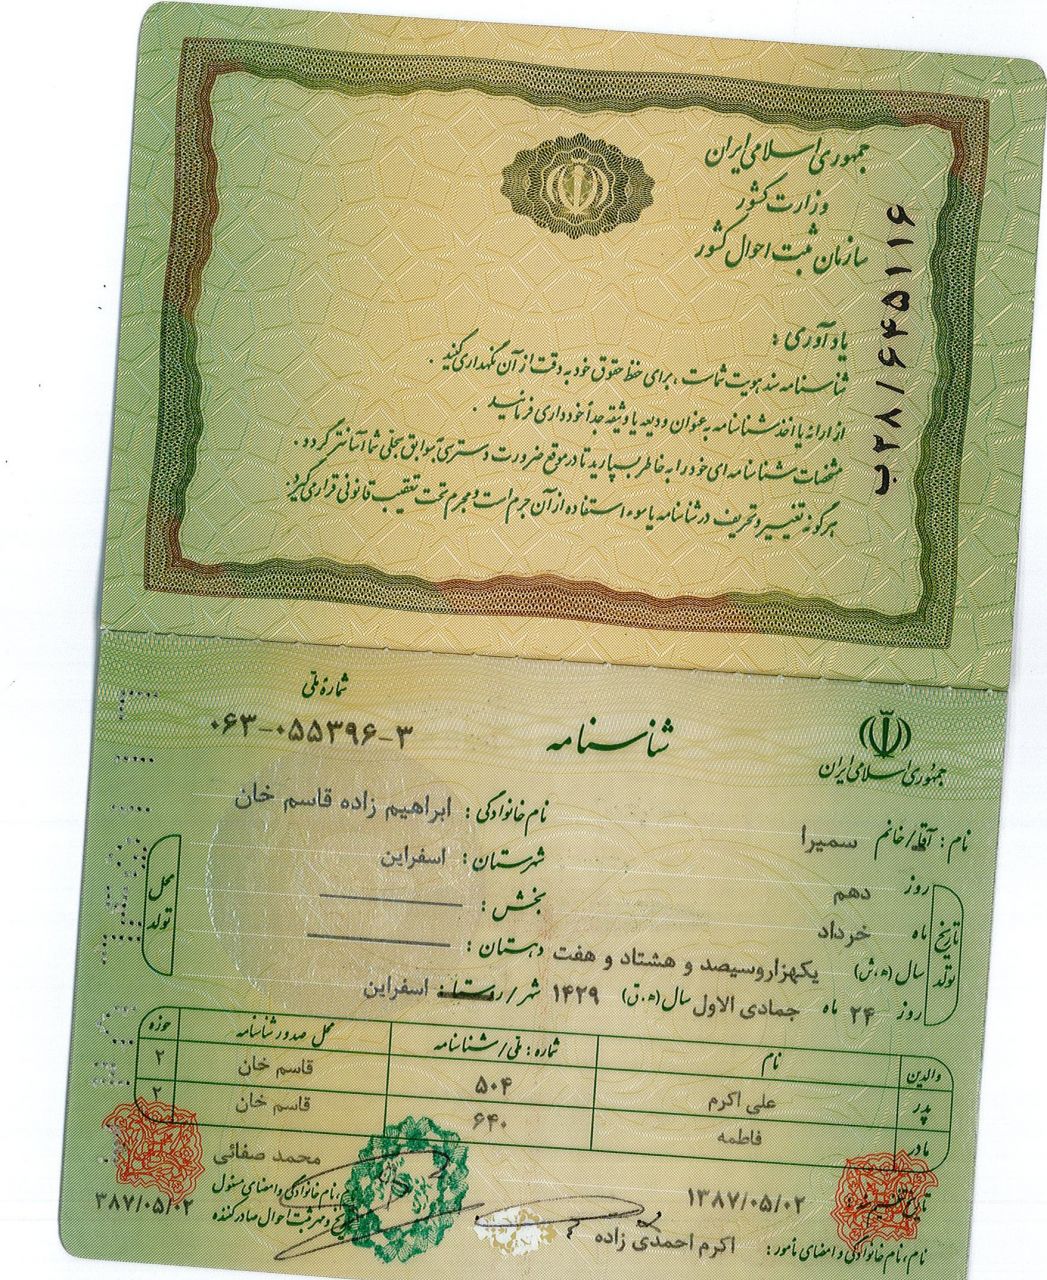 جمهوری اسلامی ایران
وزارت کشور
سازمان ثبت احوال کشور
ب۲۸/۶۴۵۱۱۶
یادآوری :
شناسنامه سند هویت شماست ، برای حفظ حقوق خود به دقت از آن نگهداری کنید .
از ارائه یا اخذ شناسنامه به عنوان ودیعه یا وثیقه جداً خودداری فرمائید .
مشخصات شناسنامه ای خود را به خاطر بسپارید تا در مواقع ضرورت دسترسی به سوابق سجلی شما آسانتر گردد .
هرگونه تغییر و تحریف در شناسنامه یا سوء استفاده از آن جرم است و مجرم تحت تعقیب قانونی قرار می گیرد .
شماره ملی
۰۶۳-۰۵۵۳۹۶-۳
شناسنامه
جمهوری اسلامی ایران
نام : آقا/خانم سمیرا
نام خانوادگی : ابراهیم زاده قاسم خان
تاریخ تولد
روز دهم
ماه خرداد
سال (ه.ش) یکهزاروسیصد و هشتاد و هفت
روز ۲۴ ماه جمادی الاول سال (ه.ق) ۱۴۲۹
محل تولد
شهرستان : اسفراین
بخش :
دهستان :
شهر/روستا : اسفراین
والدین نام شماره : ملی/شناسنامه محل صدور شناسنامه حوزه
پدر علی اکرم ۵۰۴ قاسم خان ۲
مادر فاطمه ۶۴۰ قاسم خان ۲
۱۳۸۷/۰۵/۰۲
نام، نام خانوادگی و امضای مأمور : اکرم احمدی زاده
محمد صفائی
نام، نام خانوادگی و امضای مسئول
و مهر ثبت احوال صادرکننده
۳۸۷/۰۵/۰۲